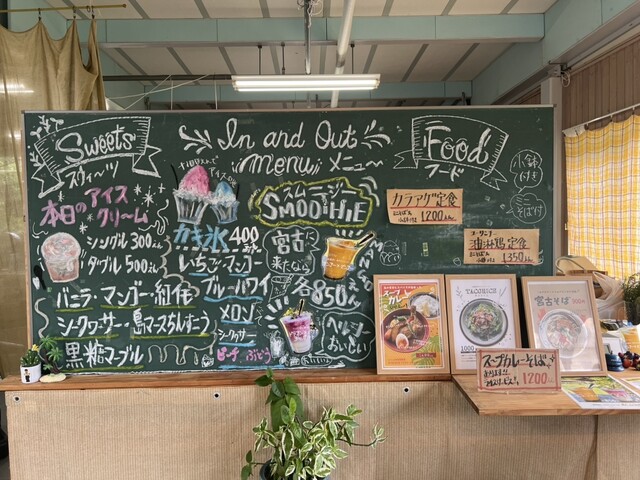 Sweets
スウィーツ
In and Out
menu メニュー
Food
フード
小鉢
付き
そば付
本日のアイス
クリーム
シングル 300えん
ダブル 500えん
バニラ・マンゴー・紅イモ
シークヮサー・島マースちんすこう
黒糖マーブル
かき氷 400
いちご・マンゴー
ブルーハワイ
メロン
シークヮサー
ピーチ ぶどう
スムージー
SMOOTHIE
宮古に
来たなら
各850えん
ヘルシー
おいしい
カラアゲ定食
1200えん
油淋鶏定食
1350えん
スープ
カレー
TACORICE
1000
宮古そば
スープカレーそば
1200